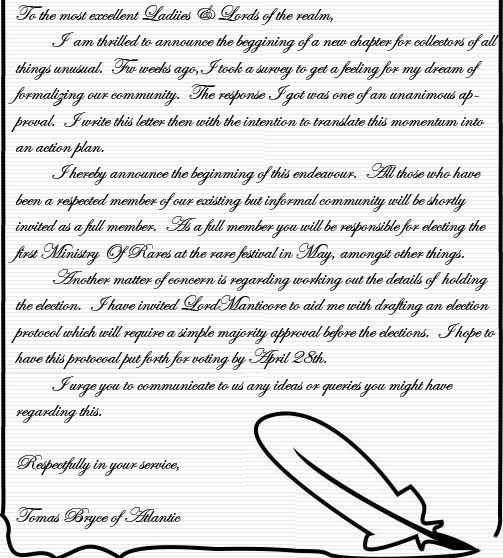 To the most excellent Ladiies & Lords of the realm,
I am thrilled to announce the beggining of a new chapter for collectors of all
things unusual. Fw weeks ago, I took a survey to get a feeling for my dream of
formalizing our community. The response I got was one of an unanimous ap-
proval. I write this letter then with the intention to translate this momentum into
an action plan.
I hereby announce the beginming of this endeavour. All those who have
been a respected member of our existing but informal community will be shortly
invited as a full member. As a full member you will be responsible for electing the
first Ministry Of Rares at the rare festival in May, amongst other things.
Another matter of concern is regarding working out the details of holding
the election. I have invited LordManticore to aid me with drafting an election
protocol which will require a simple majority approval before the elections. I hope to
have this protocoal put forth for voting by April 28th.
I urge you to communicate to us any ideas or queries you might have
regarding this.
Respectfully in your service,
Tomas Bryce of Atlantic